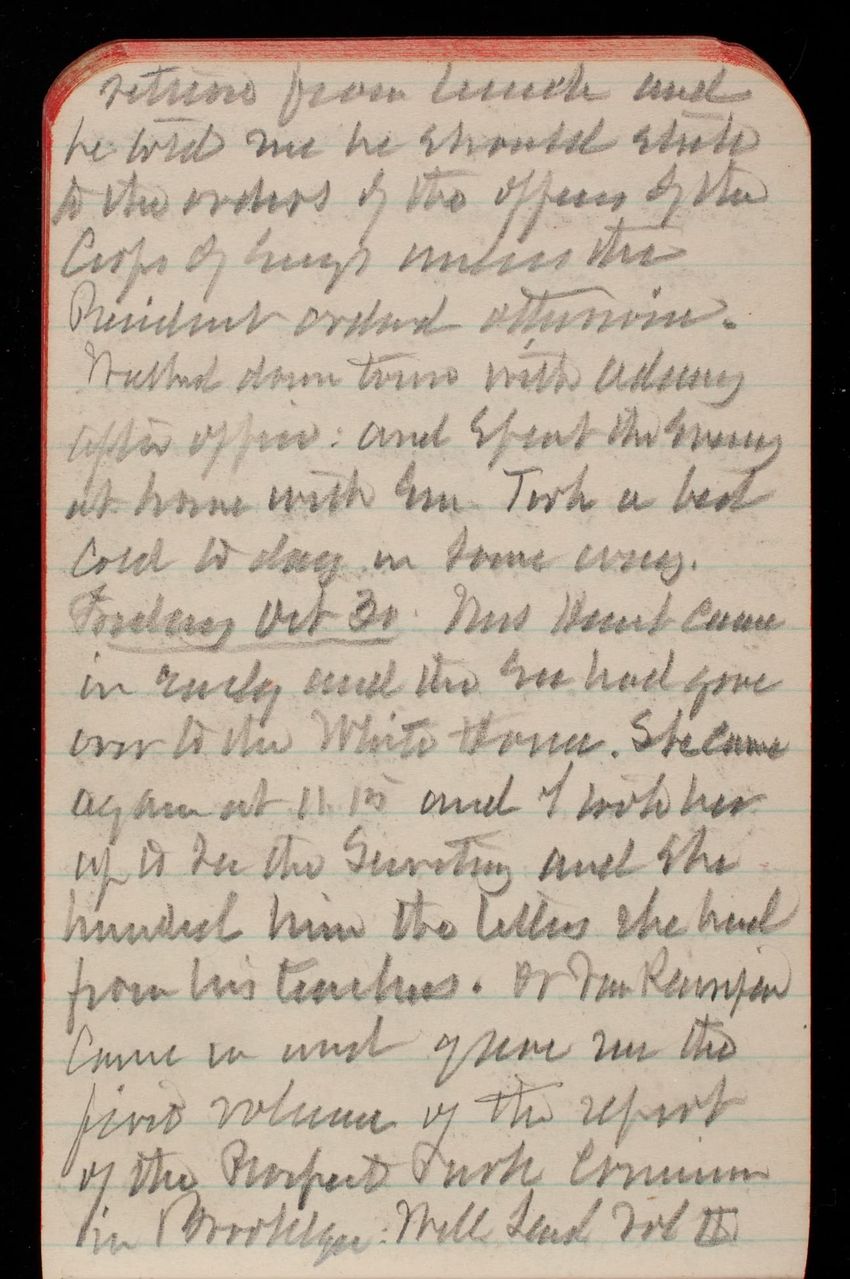 return from lunch and
he told me he should stick
to the orders of the officers of the
Corps of Engrs unless the
President ordered otherwise.
Walked down town with Adams
after office: and Spent the Evening
at home with Em. Took a bad
Cold to day in some way.
Tuesday Oct 30. Mrs Hunt came
in early and the Sec had gone
over to the White House. She came
again at 11.15 and I took her
up to see the Secretary and She
handed him the letters she had
from his teachers. Dr Van
Came in and gave me the
first volume of the report
of the Prospect Park Commission
in Brooklyn. Will Send Vol II